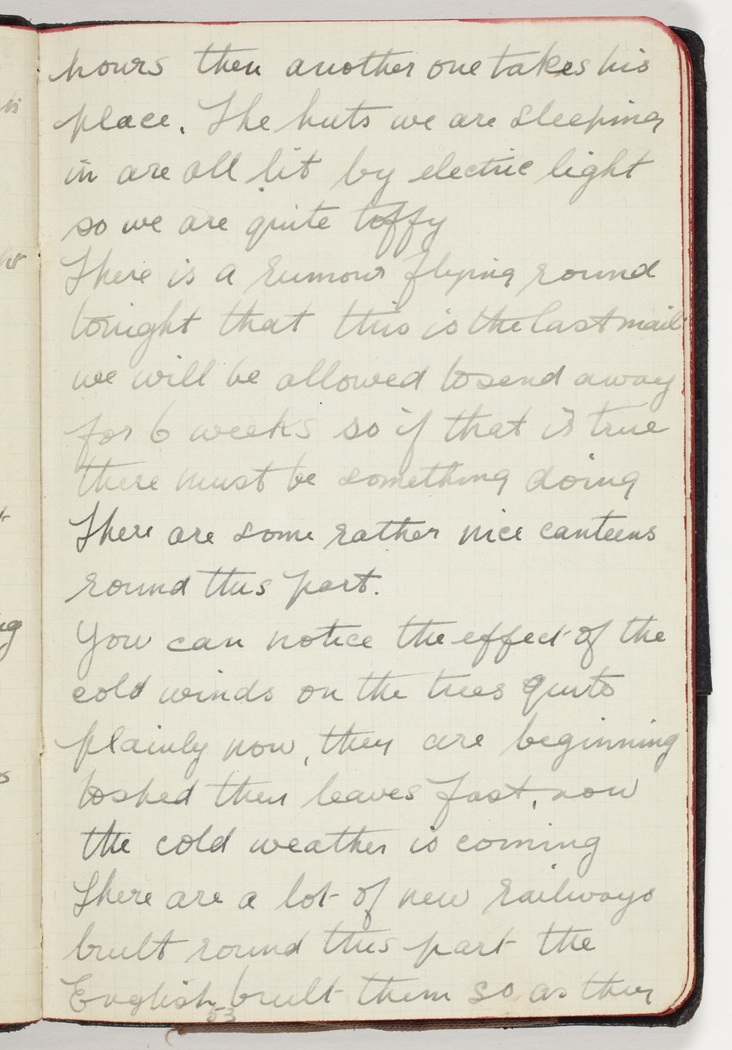 hours then another one takes his
place. The huts we are sleeping
in are all lit by electric light
so we are quite toffy
There is a rumour flying round
tonight that this is the last mail
we will be allowed to send away
for 6 weeks so if that is true
there must be something doing
There are some rather nice canteens
round this part.
You can notice the effect of the
cold winds on the trees quite
plainly now, they are beginning
to shed their leaves fast, now
the cold weather is coming
There are a lot of new railways
built round this part the
English built them so as they
53